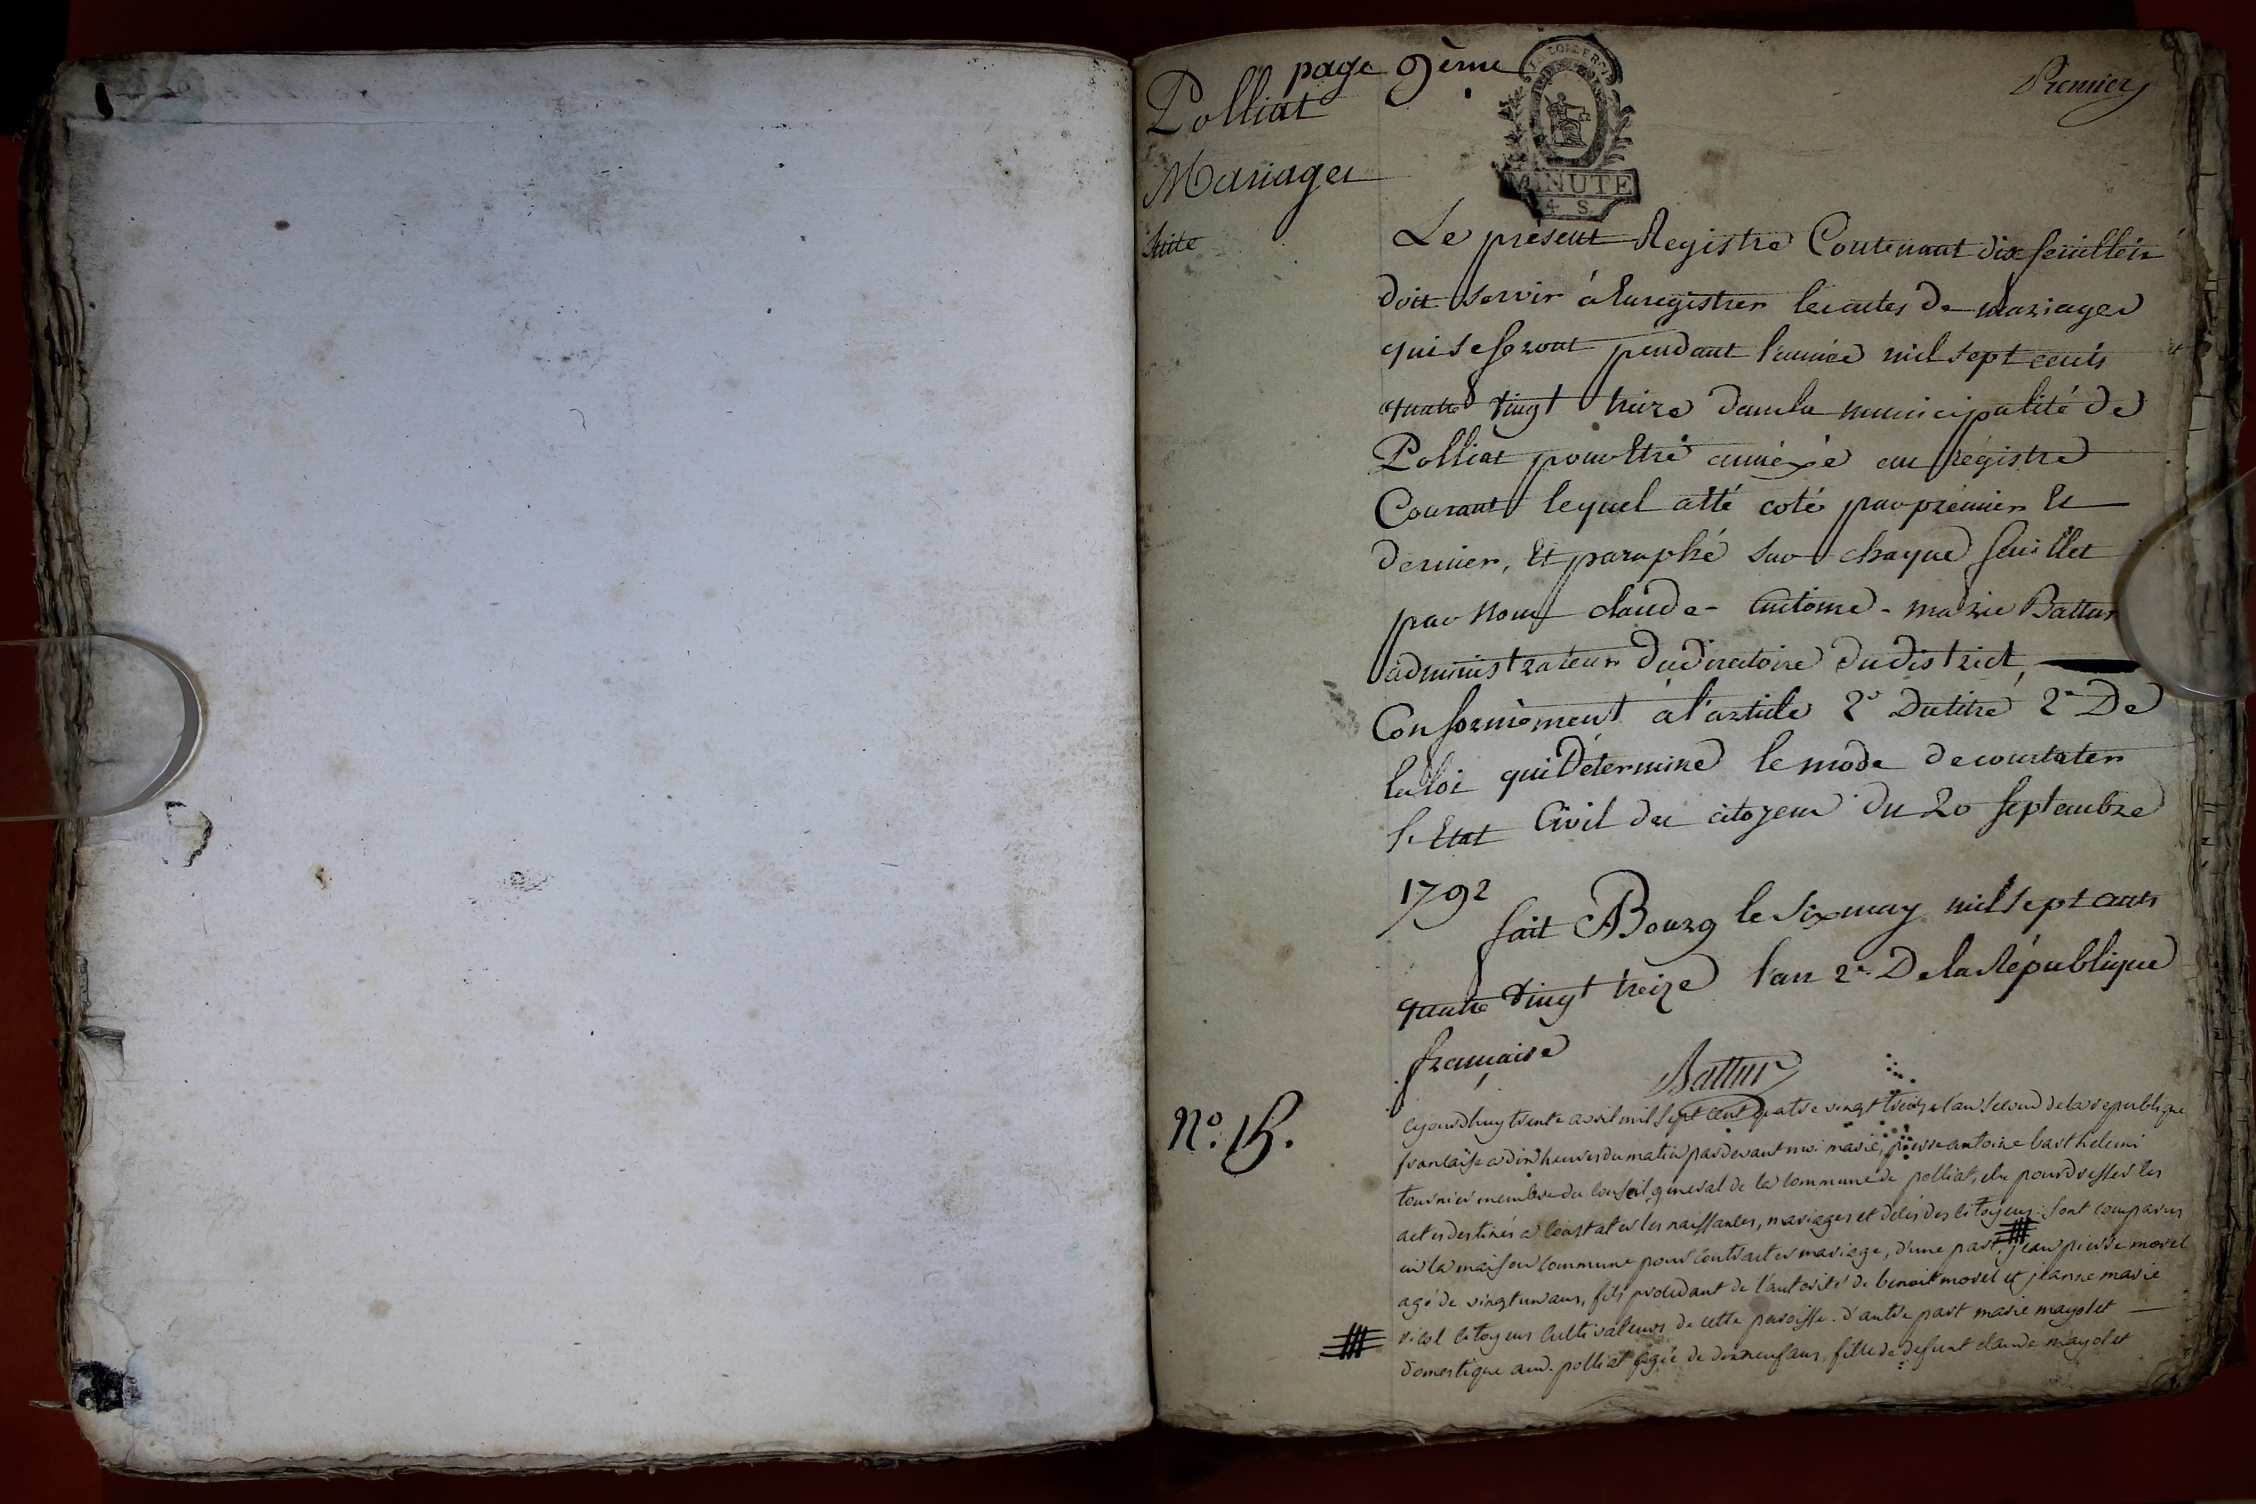 page 9ème
Premier
Polliat
Mariages
Suite
MINUTE
4 S
Le présent Registre Contenant dix feuillets
doit servir à Enregistrer les actes de mariages
qui se feront pendant l'année mil sept cents
quatre vingt treize dans la municipalité de
Polliat pour Etre annéxé au régistre
Courant lequel a été coté par prémier Et
dernier, Et paraphé sur chaque feuillet
par Nous claude-Antoine-marie Battur
administrateur du directoire du district,
Conformément à l'article 2e du titre 2e De
la loi qui Détermine le mode de constater
l'Etat Civil des citoyens du 20 septembre
1792
fait A Bourg le Six may mil sept cents
quatre vingt treize l'an 2e De la République
française
Battur
N°. 15.
Cejourdhuy trente avril mil sept cent quatre vingt treize l'an second de la republique
francaise a dix heures du matin pardevant moi pierre antoine barthelemi
tournier membre du conseil general de la commune de polliat, elu pour dresser les
actes destinés a constater les naissances, mariages et décès des citoyens: sont comparus
en la maison commune pour contracter mariage, d'une part, jean pierre morel
agé de vingt un ans, fils procedant de l'autorité de benoit morel et jeanne marie
citoyens cultivateurs de cette paroisse. d'autre part marie mayolet
domestique aud. polliat agée de dix neuf ans, fille de defunt claude mayolet